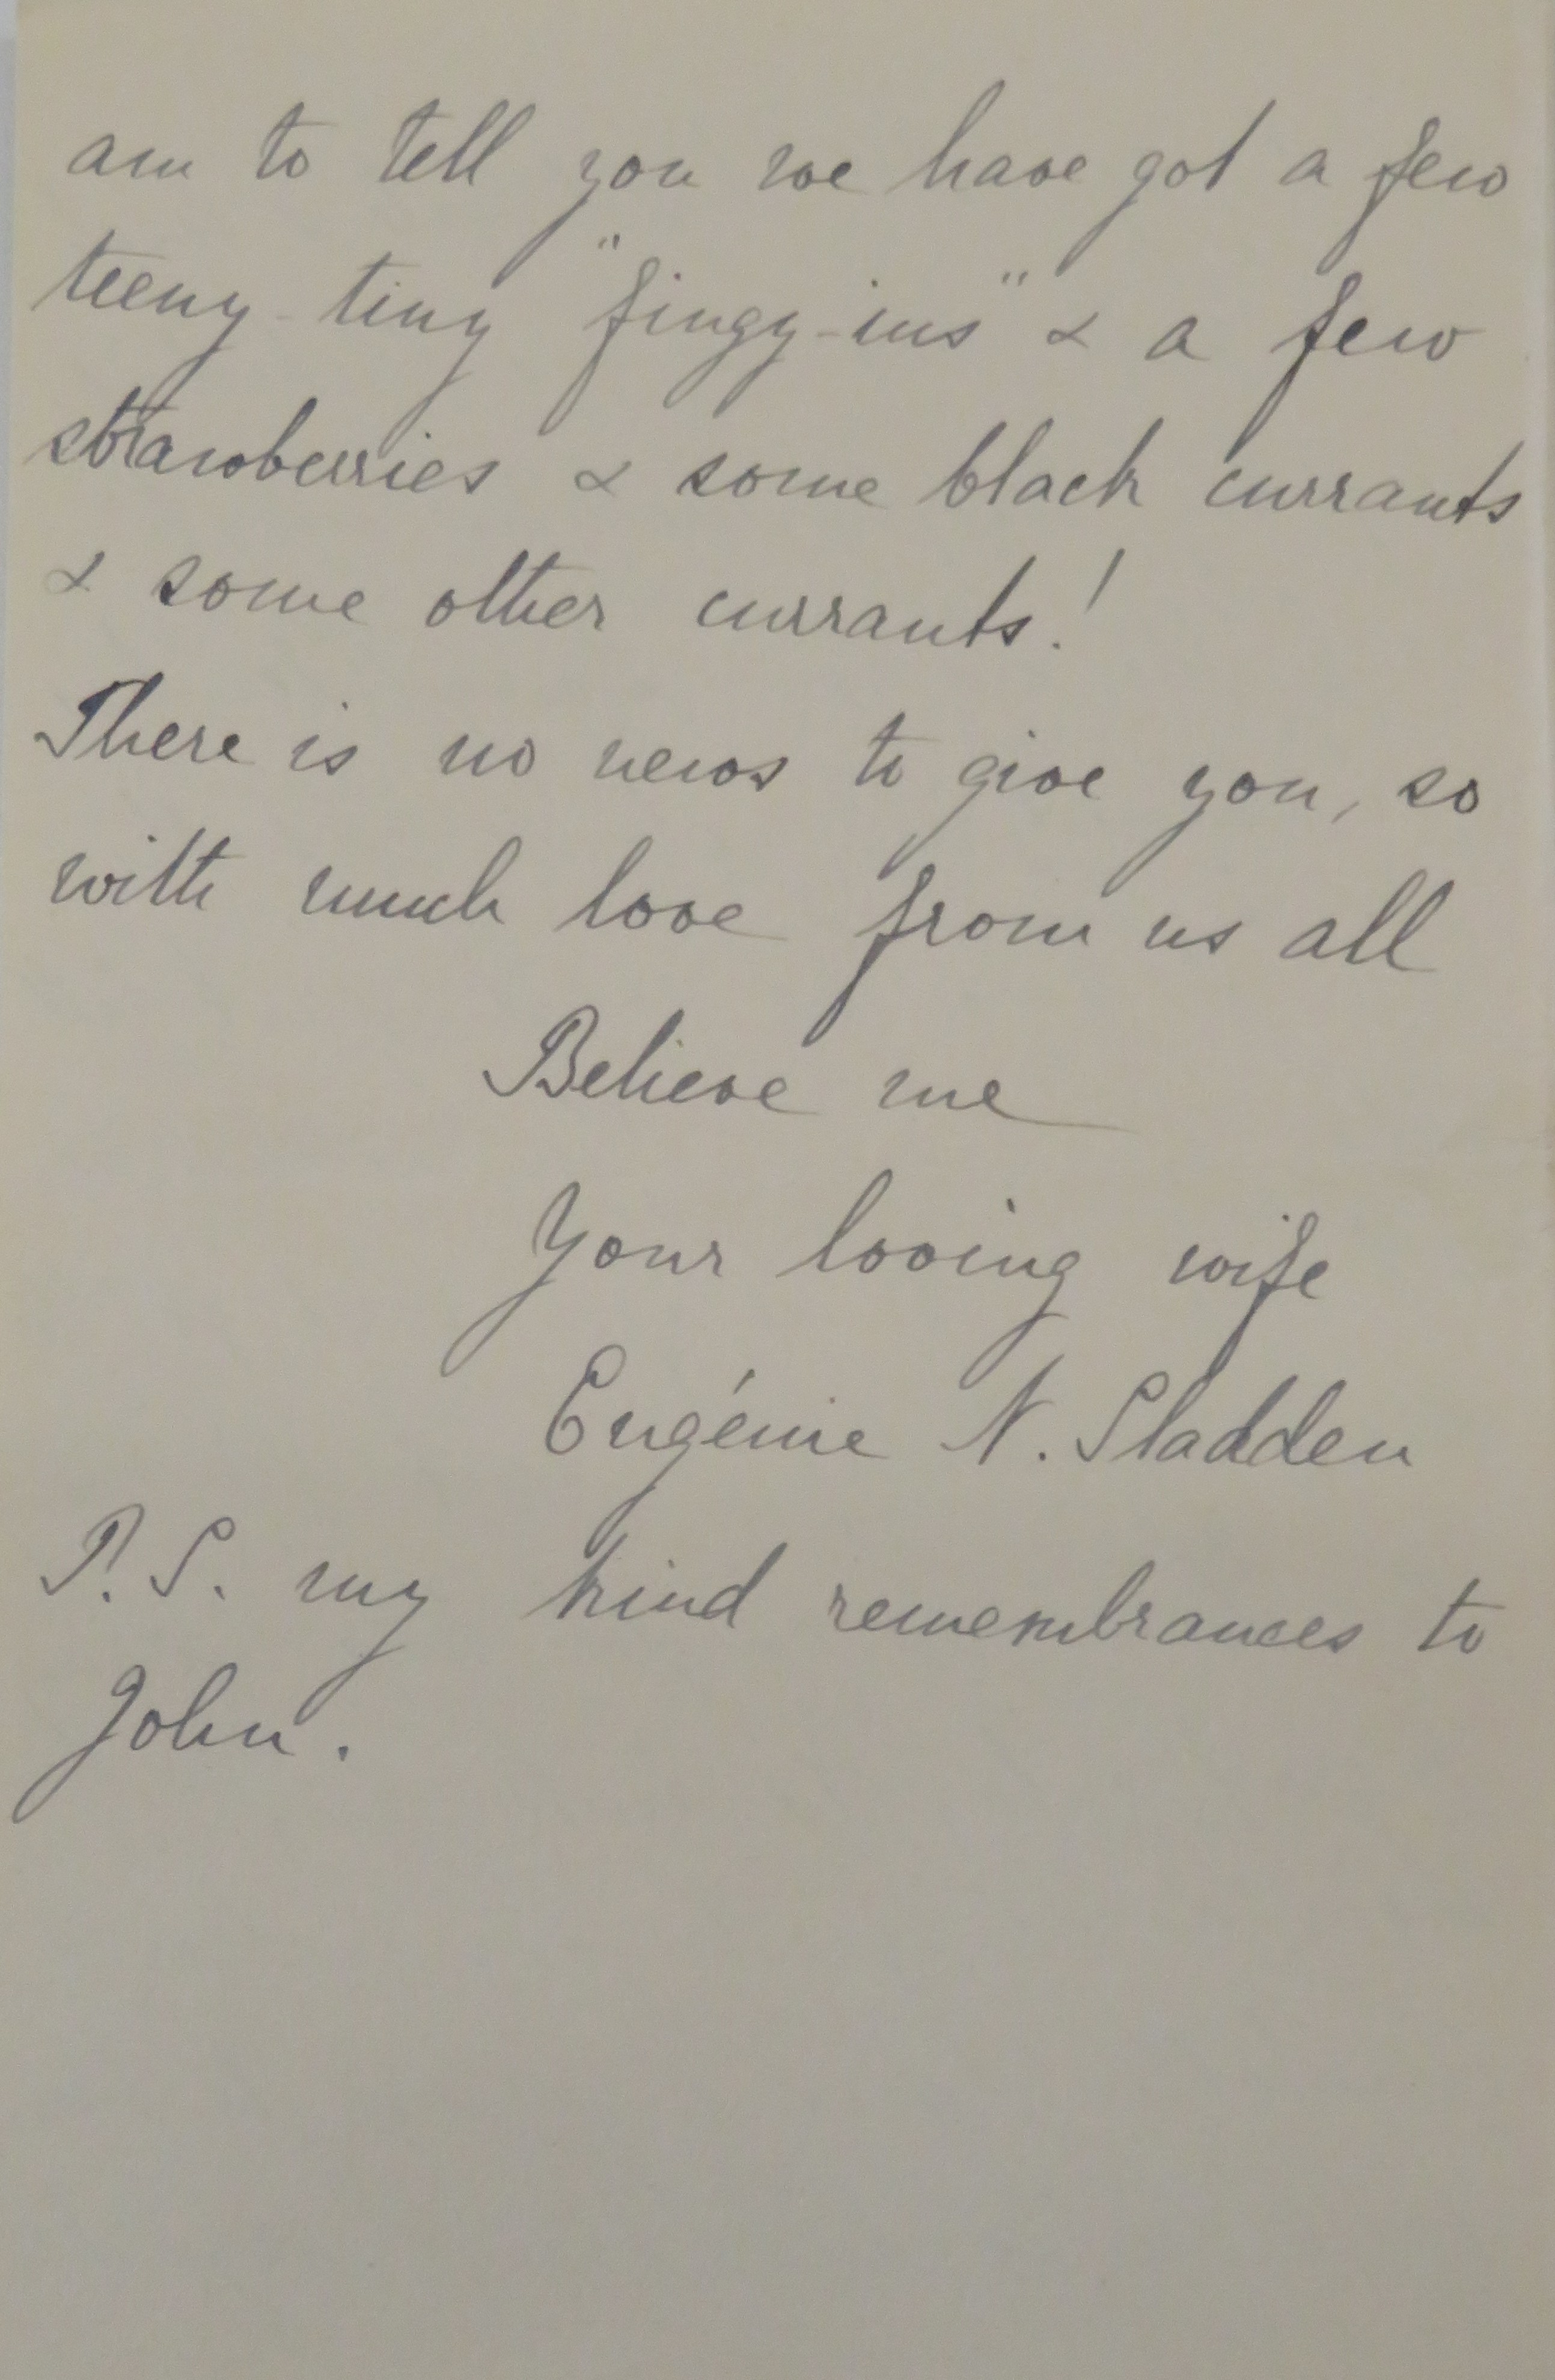 am to tell you we have got a few
teeny-tiny "fingy-ins" & a few
strawberries & some black currants
& some other currants!
There is no news to give you, so
with much love from us all
Believe me
Your loving wife
Eugénie N. Sladden
P.S. my kind remembrances to
John.